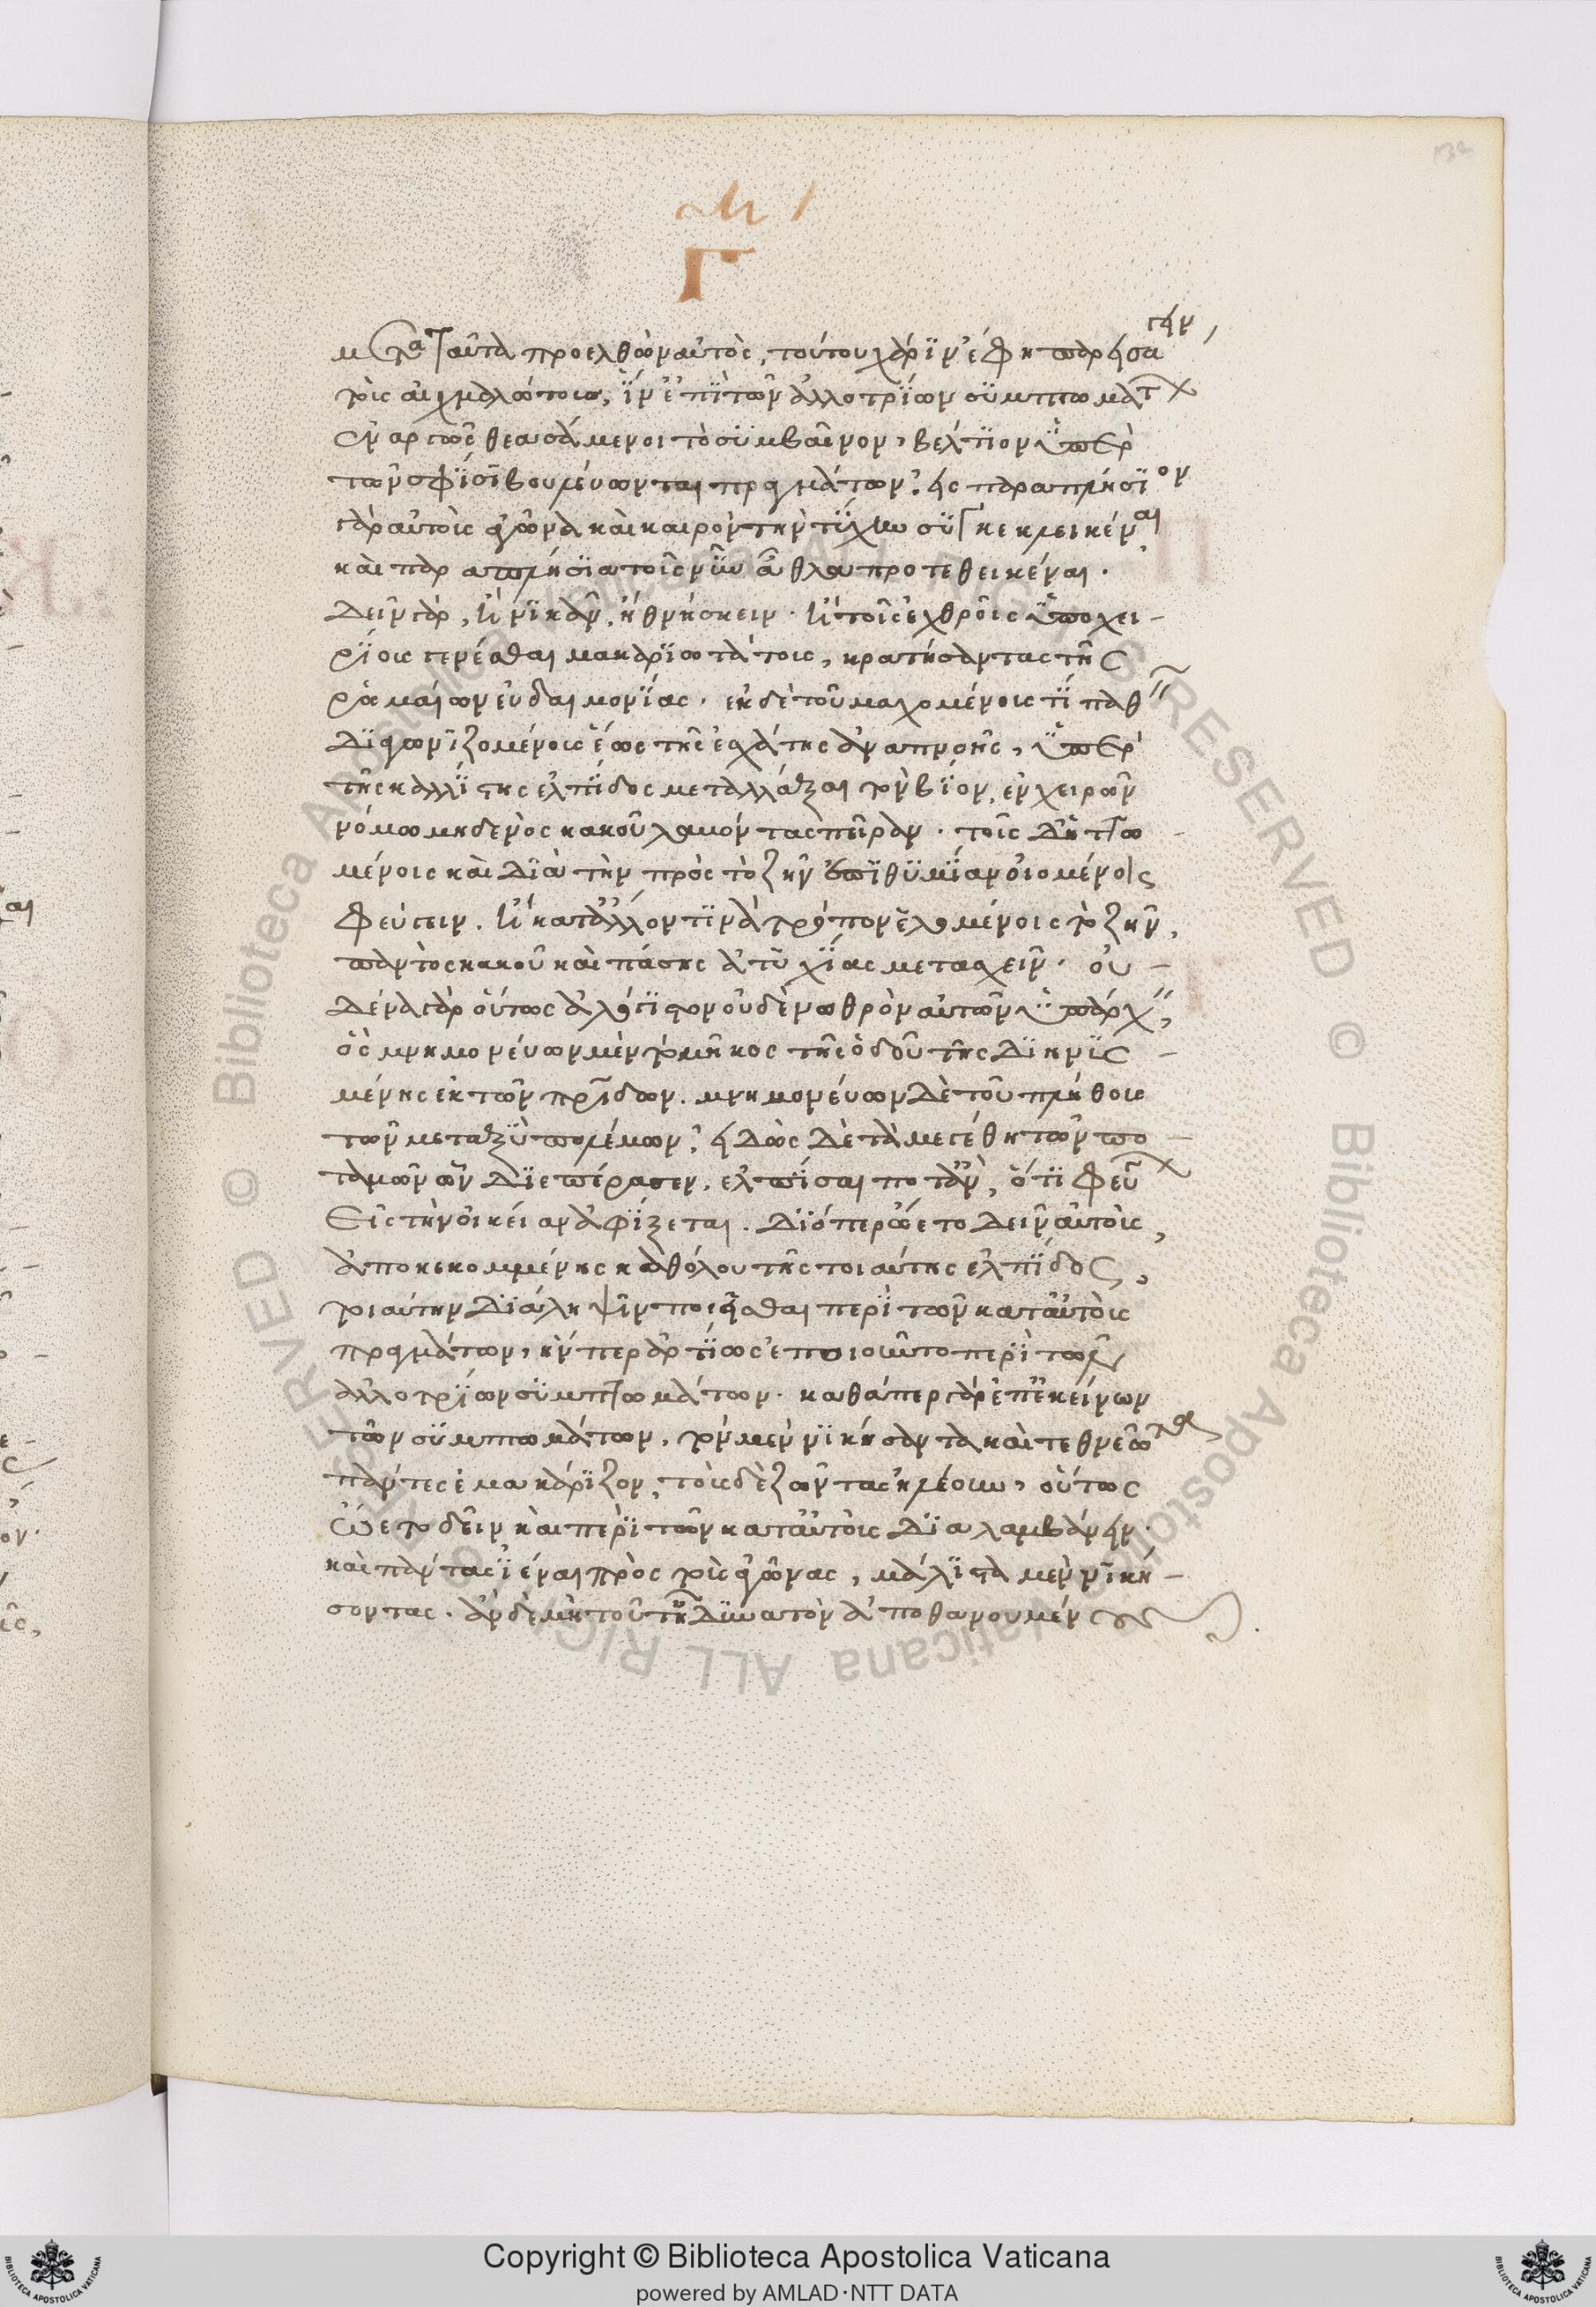 Γ
μετὰ ταῦτα προελθὼν αὐτὸς, τούτου χάριν ἔφη παρεισάγειν,
τοὺς αἰχμαλώτους, ἵν ἐπὶ τῶν ἀλλοτρίων συμπτωμάτων
ἐναργῶς θεασάμενοι τὸ συμβαῖνον, βέλτιον ὑπὲρ
τῶν σφίσι βουλεύωνται πραγμάτων. εἰς παραπλήσιον
γὰρ αὐτοὺς ἀγῶνα καὶ καιρὸν τὴν τύχην συγκεκλεικέναι
καὶ παραπλήσια τοῖς νῦν ἆθλα προτεθεικέναι.
δεῖν γὰρ, ἢ νικᾶν, ἢ θνήσκειν. ἢ τοῖς ἐχθροῖς ὑποχει-
ρίους γενέσθαι μακαριωτάτους, κρατήσαντας τῆς
ῥωμαίων εὐδαιμονίας. ἐκ δὲ τοῦ μαχομένους τί παθεῖν
διαγωνιζομένους ἕως τῆς ἐσχάτης ἀναπνοῆς, ὑπὲρ
τῆς καλλίστης ἐλπίδος μεταλλάξαι τὸν βίον, ἐν χειρῶν
νόμω μηδενὸς κακοῦ λαμόντας πεῖραν. τοῖς δ' ἡττω
μένοις καὶ διὰ τὴν πρὸς τὸ ζῆν ἐπιθυμίαν οἰομένοις
φεύγειν. ἢ κατ' ἄλλον τινὰ τρόπον ἑλομένοις τὸ ζῆν,
παντὸς κακοῦ καὶ πάσης ἀτυχίας μετασχεῖν. οὐ-
δένα γὰρ οὕτως ἀλόγιστον οὐδὲ νωθρὸν αὐτῶν ὑπάρχειν,
ὃς μνημονεύων μὲν τὸ μῆκος τῆς ὁδοῦ τῆς διηνυς-
μένης ἐκ τῶν πατρίδων. μνημονεύων δὲ τοῦ πλήθους
τῶν μεταξὺ πολέμων. εἰδὼς δὲ τὰ μεγέθη τῶν πο-
ταμῶν ὧν διεπέρασεν, ἐλπίσαι ποτ' ἂν, ὅτι φεύγων
εἰς τὴν οἰκείαν ἀφίξεται. διόπερ ὤετο δεῖν αὐτοὺς,
ἀποκεκομμένης καθόλου τῆς τοιαύτης ἐλπίδος,
τοιαύτην διάληψιν ποιεῖσθαι περὶ τῶν κατ' αὐτοὺς
πραγμάτων, ἥνπερ ἀρτίως ἐποιοῦντο περὶ τῶν
ἀλλοτρίων συμπτωμάτων. καθάπερ γὰρ ἐπ' ἐκείνων
τῶν συμπτωμάτων, τὸν μὲν νικήσαντα καὶ τεθνεῶτα
πάντες ἐμακάριζον, τοὺς δὲ ζῶντας ἠλέουν, οὕτως
ὤετο δεῖν καὶ περὶ τῶν κατ' αὐτοὺς διαλαμβάνειν.
καὶ πάντας ἰέναι πρὸς τοὺς ἀγῶνας, μάλιστα μὲν νική-
σοντας. ἂν δὲ μὴ τοῦτ' ἦ δυνατὸν ἀποθανουμένους.
Copyright © Biblioteca Apostolica Vaticana
powered by AMLAD·NTT DATA